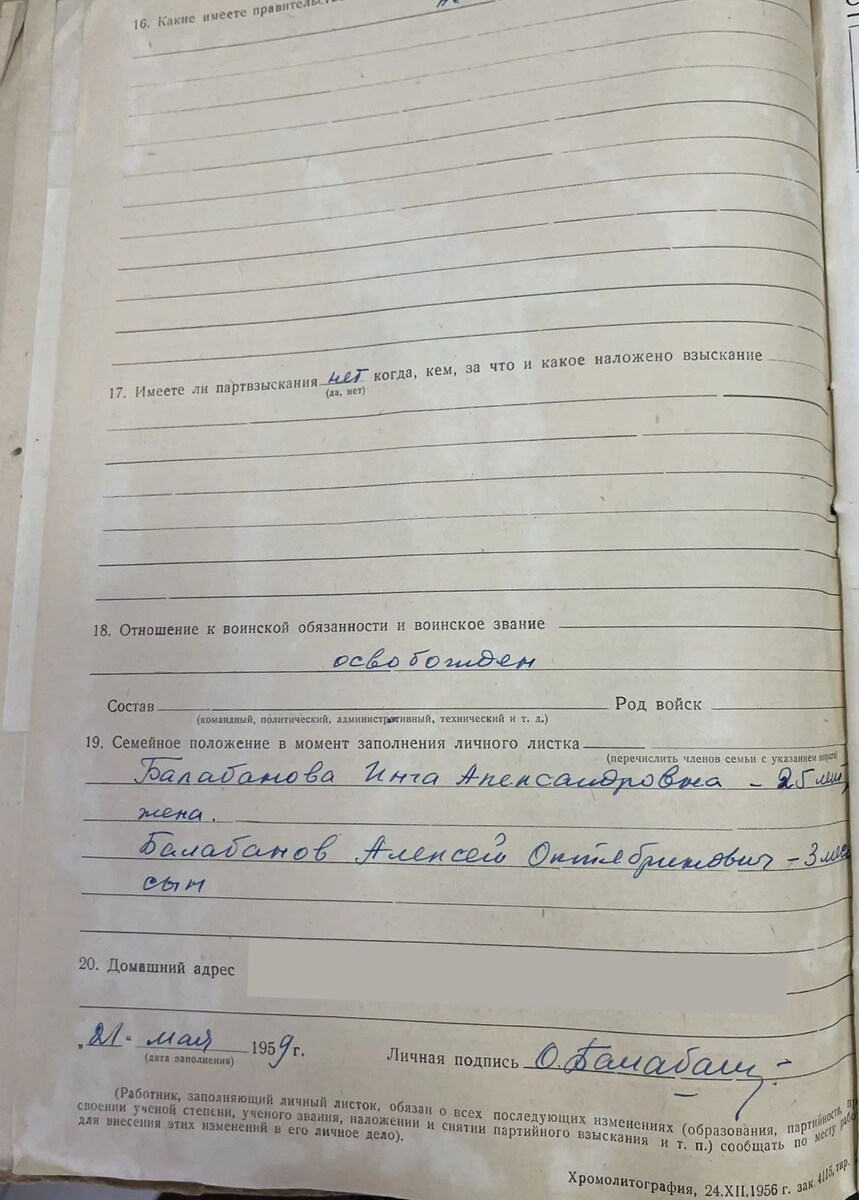 16. Какие имеете
17. Имеете ли партвзыскания нет когда, кем, за что и какое наложено взыскание
(да, нет)
18. Отношение к воинской обязанности и воинское звание
освобожден
Состав Род войск
(командный, политический, административный, технический и т. д.)
19. Семейное положение в момент заполнения личного листка
(перечислить членов семьи с указанием возраста)
Балабанова Инга Александровна – 25 лет,
жена.
Балабанов Алексей Октябринович – 3 мес
сын
20. Домашний адрес
„21" мая 1959 г. Личная подпись О. Балабан
(дата заполнения)
(Работник, заполняющий личный листок, обязан о всех последующих изменениях (образования, партийности,
своении ученой степени, ученого звания, наложении и снятии партийного взыскания и т. п.) сообщать по месту
для внесения этих изменений в его личное дело).
Хромолитография, 24.XII.1956 г. зак. 4115, тир.